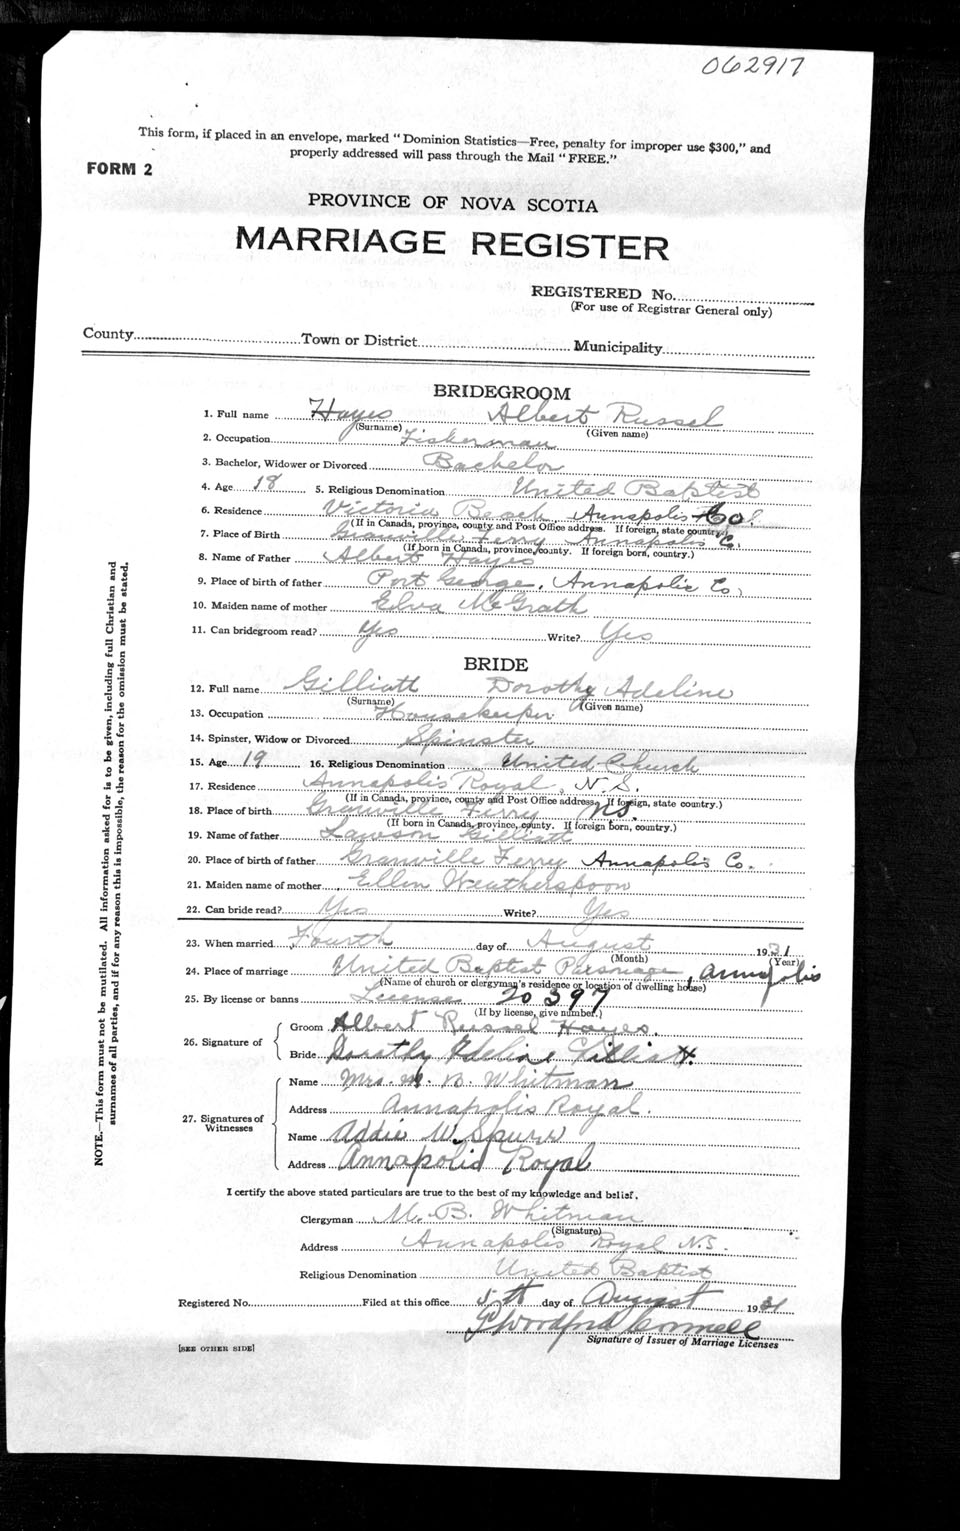 062917
This form, if placed in an envelope, marked "Dominion Statistics—Free, penalty for improper use $300," and
properly addressed will pass through the Mail "FREE."
FORM 2
PROVINCE OF NOVA SCOTIA
MARRIAGE REGISTER
REGISTERED No.
(For use of Registrar General only)
County Town or District Municipality
BRIDEGROOM
1. Full name Hayes Albert Russel
(Surname) (Given name)
2. Occupation Fisherman
3. Bachelor, Widower or Divorced Bachelor
4. Age 18 5. Religious Denomination United Baptist
6. Residence Victoria Beach, Annapolis Co.
(If in Canada, province, county and Post Office address. If foreign, state country.)
7. Place of Birth Granville Ferry Annapolis Co.
(If born in Canada, province, county. If foreign born, country.)
8. Name of Father Albert Hayes
9. Place of birth of father Port George, Annapolis Co,
10. Maiden name of mother Elva McGrath
11. Can bridegroom read? Yes Write? Yes
BRIDE
12. Full name Gilliatt Dorothy Adeline
(Surname) (Given name)
13. Occupation Housekeeper
14. Spinster, Widow or Divorced Spinster
15. Age 19 16. Religious Denomination United Church
17. Residence Annapolis Royal, N.S.
(If in Canada, province, county and Post Office address. If foreign, state country.)
18. Place of birth Granville Ferry NS.
(If born in Canada, province, county. If foreign born, country.)
19. Name of father Lawson Gilliatt
20. Place of birth of father Granville Ferry Annapolis Co.
21. Maiden name of mother Ellen Weatherspoon
22. Can bride read? Yes Write? Yes
23. When married Fourth day of August 1931
(Month) (Year)
24. Place of marriage United Baptist Parsonage, Annapolis
(Name of church or clergyman's residence or location of dwelling house)
25. By license or banns License 20397
(If by license, give number.)
26. Signature of
Groom Albert Russel Hayes.
Bride Dorothy Adeline Gilliatt
27. Signatures of Witnesses
Name Mrs. M. B. Whitman
Address Annapolis Royal.
Name Addie W. Spurr
Address Annapolis Royal
I certify the above stated particulars are true to the best of my knowledge and belief.
Clergyman M. B. Whitman
(Signature)
Address Annapolis Royal N.S.
Religious Denomination United Baptist
Registered No. Filed at this office 5th day of August 1931
Signature of Issuer of Marriage Licenses
[SEE OTHER SIDE]
NOTE.—This form must not be mutilated. All information asked for is to be given, including full Christian and
surnames of all parties, and if for any reason this is impossible, the reason for the omission must be stated.